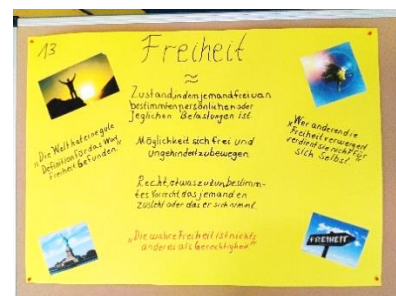 13
Freiheit
≈
Zustand, in dem jemand frei von
bestimmten persönlichen oder
jeglichen Belastungen ist
Möglichkeit sich frei und
ungehindert zu bewegen
Recht, etwas zu tun bestimm-
tes Vorrecht das jemanden
zusteht oder das er sich nimmt
"Die wahre Freiheit ist nichts
anderes als Gerechtigkeit."
"Die Welt hat nie eine gute
Definition für das Wort
Freiheit gefunden."
"Wer anderen die
Freiheit verweigert
verdient sie nicht für
sich selbst."
FREIHEIT